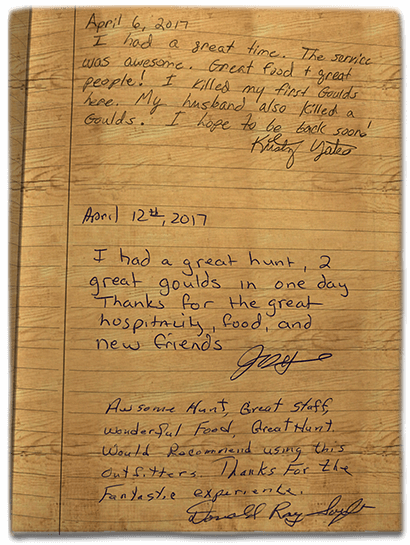 April 6, 2017
I had a great time. The service
was awesome. Great food + great
people! I killed my first Goulds
here. My husband also killed a
Goulds. I hope to be back soon!
Kristy Yates
April 12th, 2017
I had a great hunt, 2
great goulds in one day
Thanks for the great
hospitality, food, and
new friends
Awsome Hunt, Great Staff,
wonderful Food, Great Hunt.
Would Recommend using this
outfitters. Thanks For the
Fantastic experience.
Donald Ray